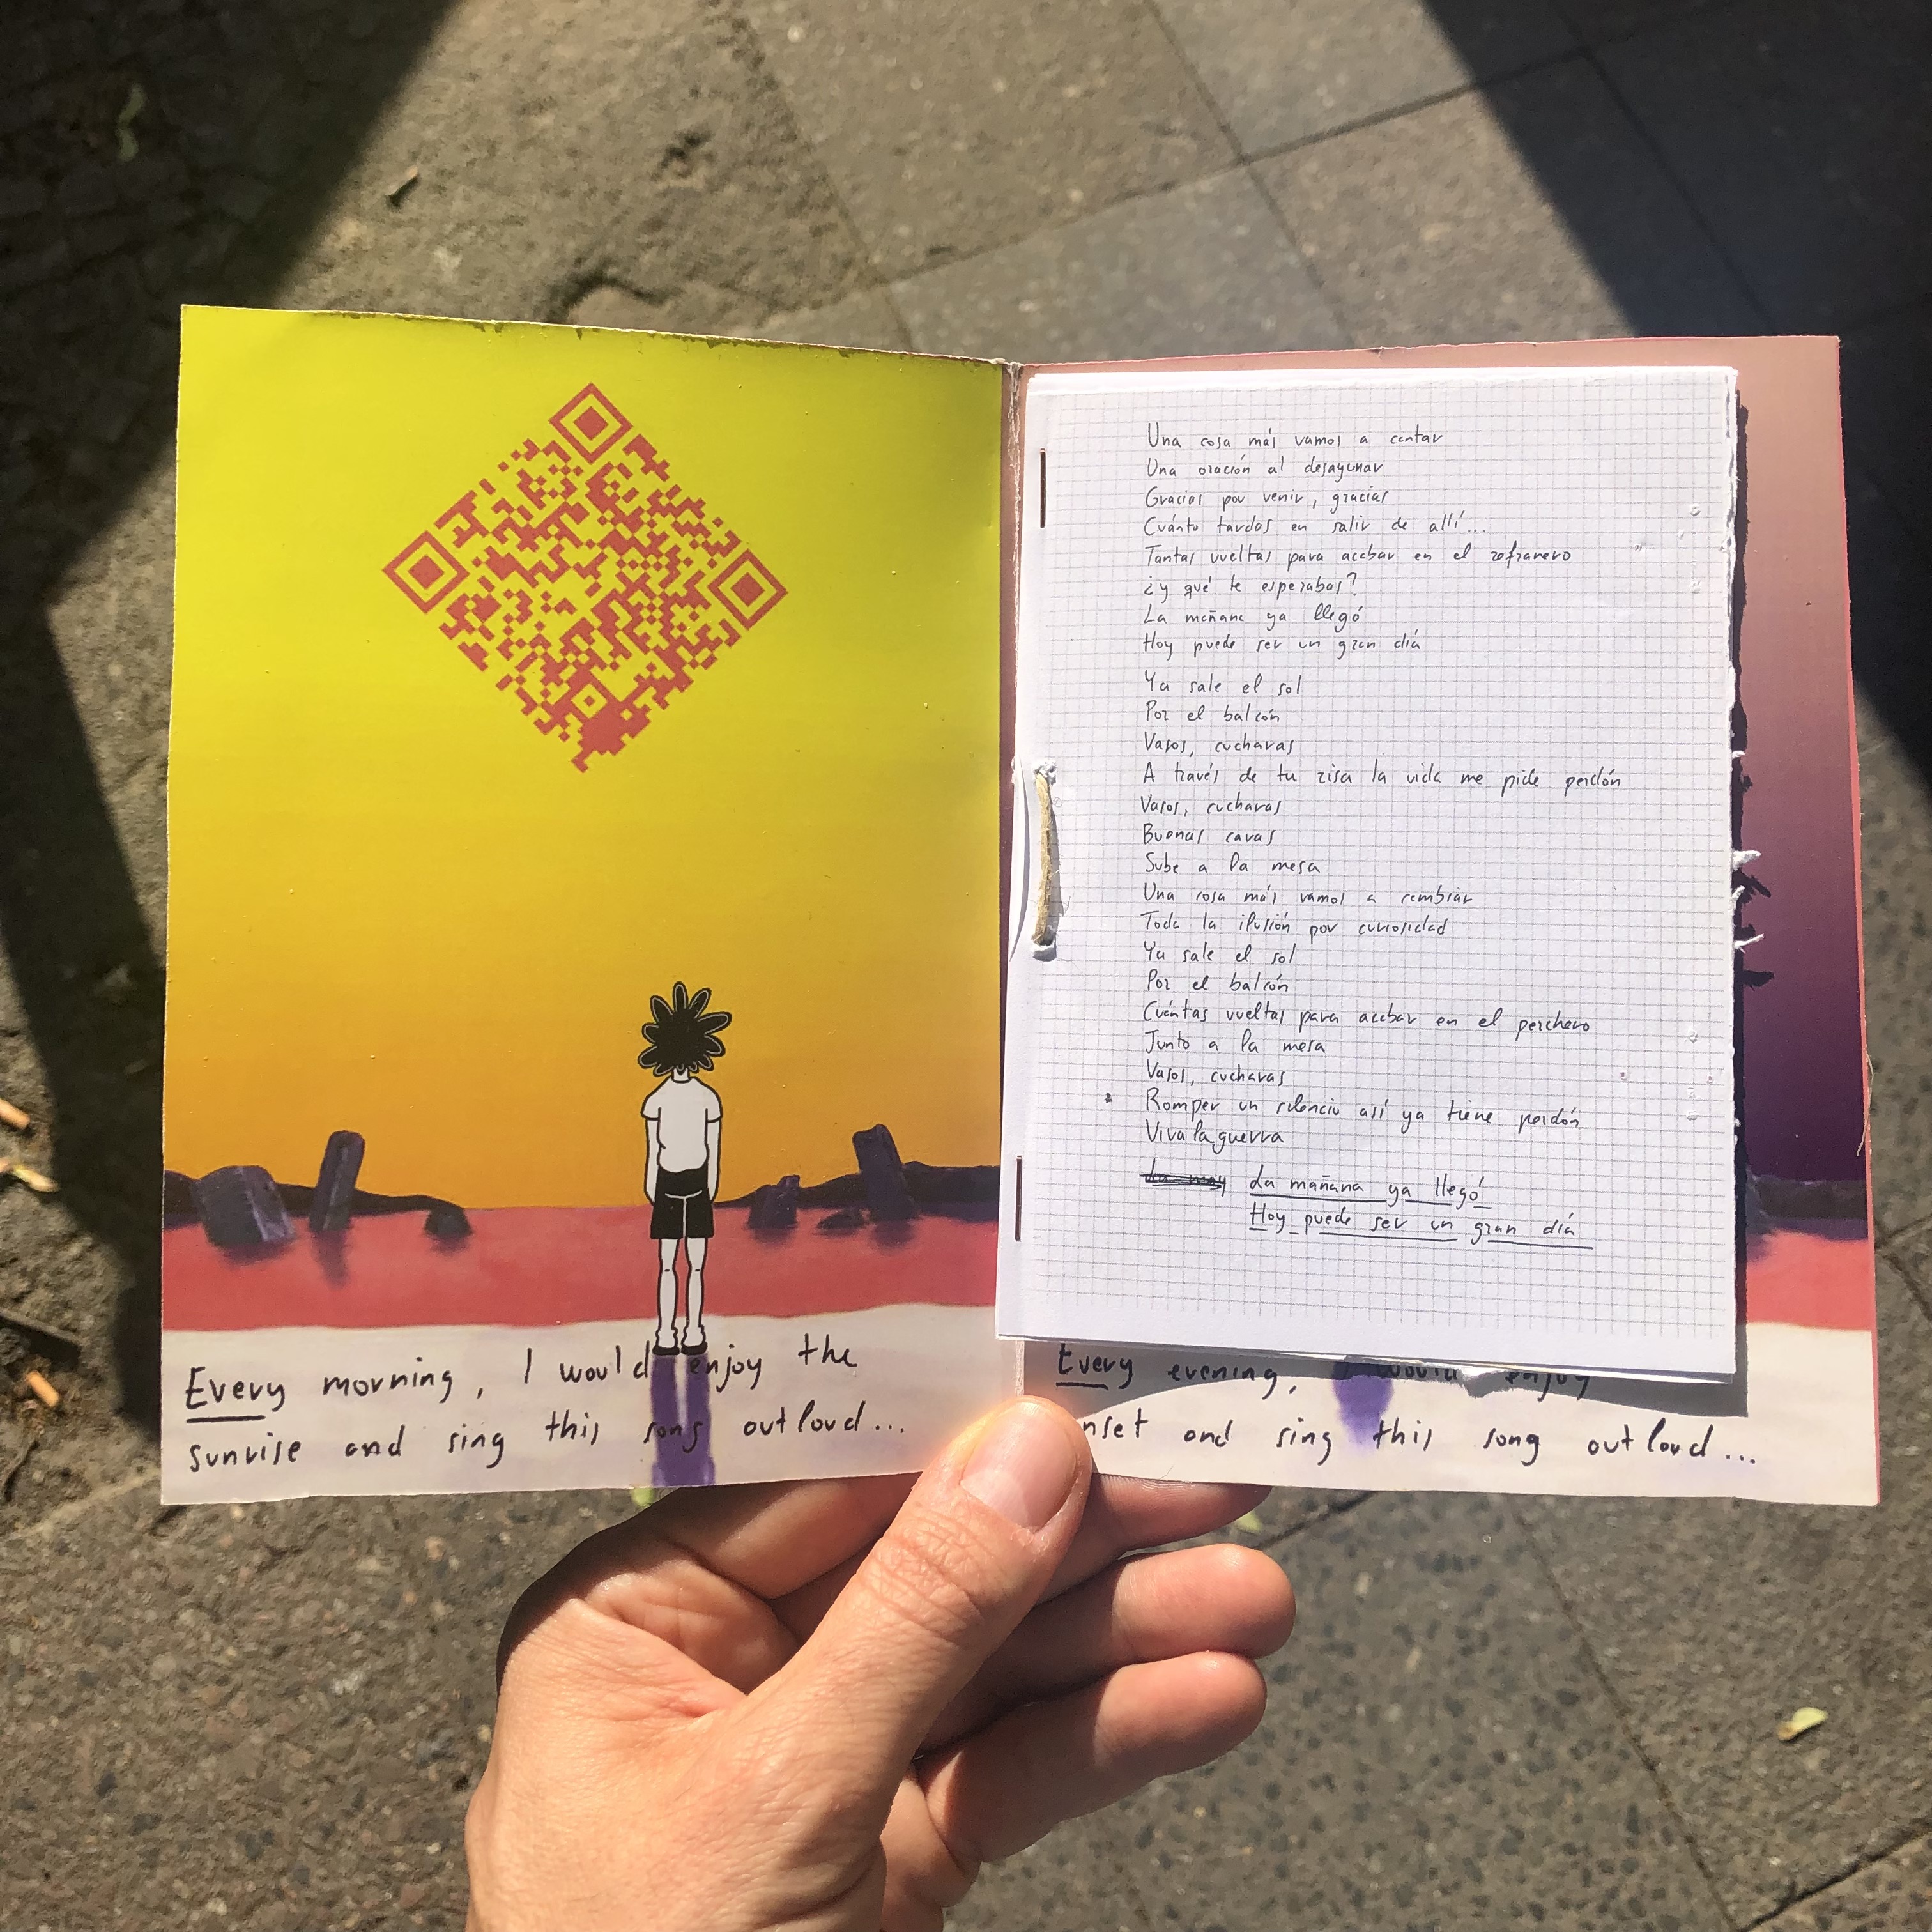 Every morning, I would enjoy the
sunrise and sing this song outloud...
Una cosa más vamos a contar
Una oración al desayunar
Gracias por venir, gracias
Cuánto tardas en salir de allí...
Tantas vueltas para acabar en el refranero
¿y qué te esperabas?
La mañana ya llegó
Hoy puede ser un gran día
Ya sale el sol
Por el balcón
Vasos, cucharas
A través de tu risa la vida me pide perdón
Vasos, cucharas
Buenas caras
Sube a la mesa
Una cosa más vamos a cambiar
Toda la ilusión por curiosidad
Ya sale el sol
Por el balcón
Cuántas vueltas para acabar en el perchero
Junto a la mesa
Vasos, cucharas
Romper un silencio así ya tiene perdón
Viva la guerra
La mañana ya llegó
Hoy puede ser un gran día
Every evening, I would enjoy
nset and sing this song outloud...